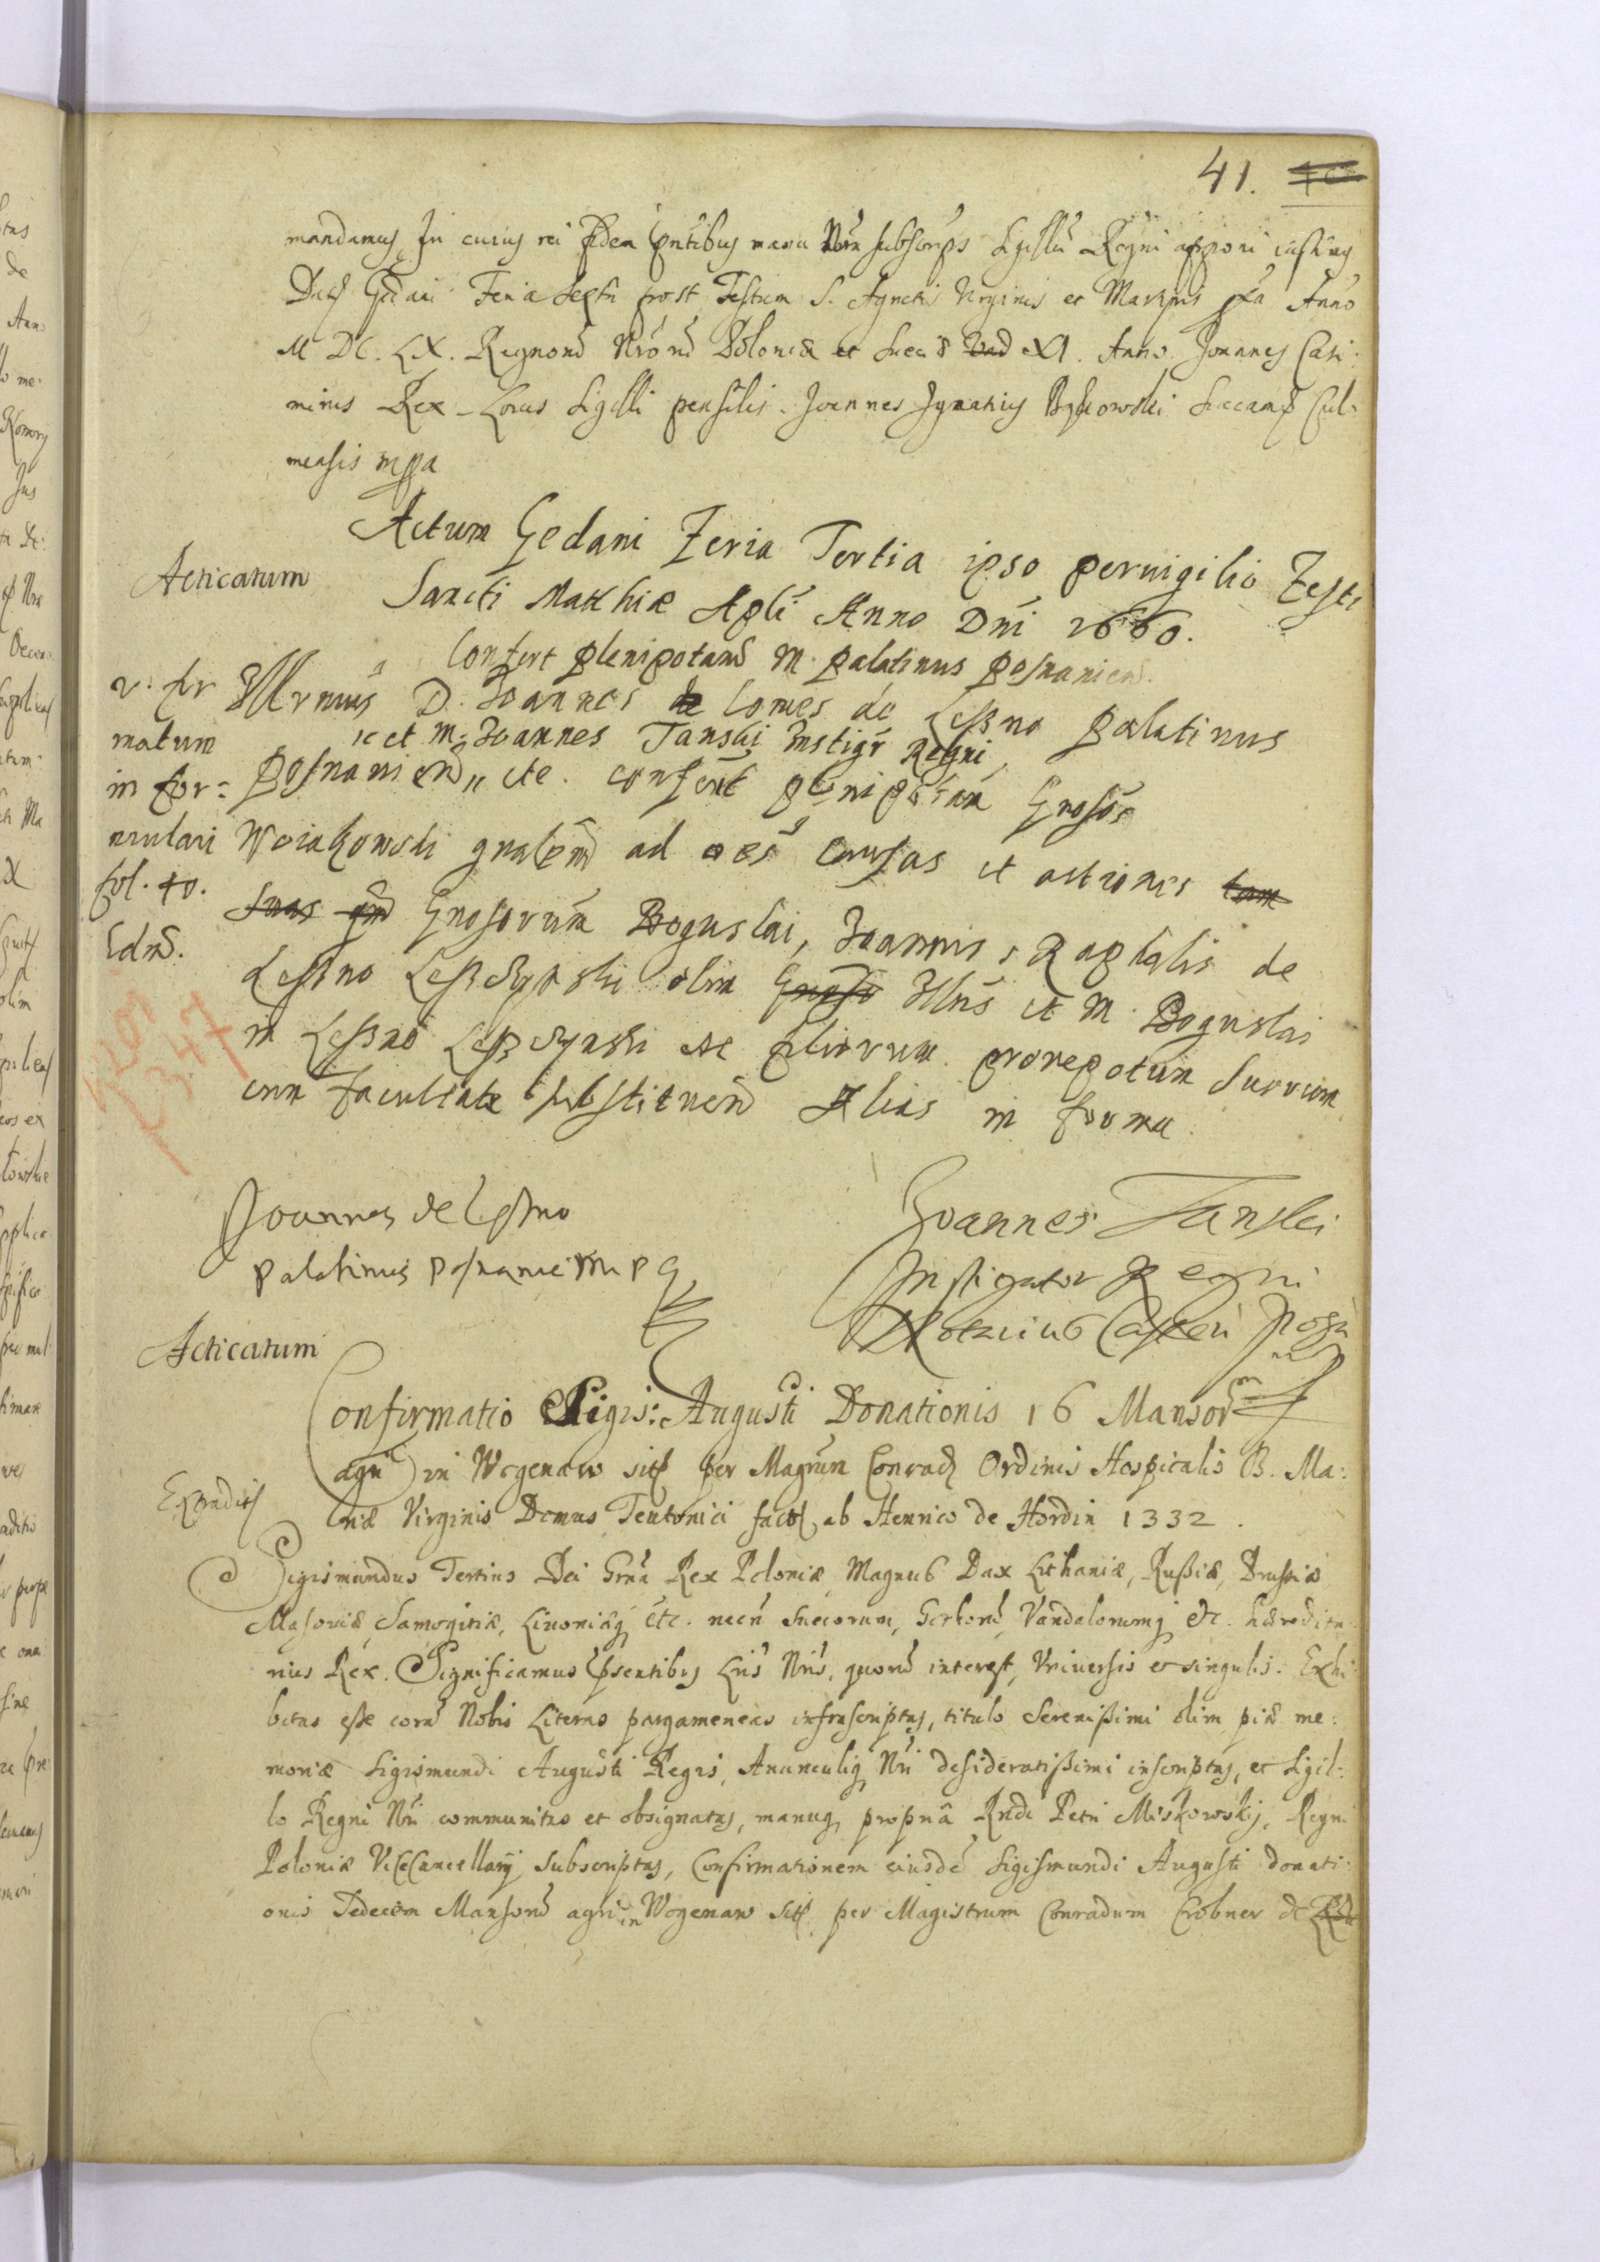 41.
mandamus, In cuius rei fidem pntibus manu Nrã subscrips Sigillũ Regni apponi iussimus
Dat Gedani Feria Sexta post Festum S. Agnetis Virginis et Martyris pxa Anno
M DC. LX. Regnorũ Nrorũ Poloniæ et Sueciæ XI. Anno. Joannes Casi:
mirus Rex. Locus Sigilli pensilis. Joannes Ignatius Bąkowski Succam Cul:
mensis mppa
Acticatum
Actum Gedani Feria Tertia ipso pervigilio Festi
Sancti Matthiæ Apli Anno Dni 1660.
Confert plenipotend M. palatinus posnanien.
Illrmus D. Joannes de Comes de Leszno palatinus
et M. Joannes Tanski Instigr Regni
posnanien, etc. conferut plenipotem Gnoso
Woiakowski gnalem ad oes causas et actiones tam
suas qm Gnosorum Boguslai, Joannis, Raphalis de
Leszno Leszczynski olim Gnoso Illris et M. Boguslai
in Leszno Leszczynski etc filiorum pronepotum suorum
cum facultate substituend Alias in forma.
v. fir
matum
in for:
mulari
fol. 40.
Edid.
p. 347
Joannes de Leszno
palatinus posnanie mpp
Joannes Tanski
Instigator Regni
Notarius Castren Posn
Acticatum
Confirmatio Sigis: Augusti Donationis 16 Mansor
agri in Wogenaw sit per Magrum Conrad Ordinis Hospitalis B. Ma:
riæ Virginis Domus Teutonici fact ab Henrico de Hordin 1332.
Extradit
Sigismundus Tertius Dei Grã Rex Poloniæ, Magnus Dux Lithaniæ, Russiæ, Prussiæ
Masoviæ, Samogitiæ, Livoniæq, etc. necn Suecorum, Gothorũ, Vandalorumq etc. hæredita
rius Rex. Significamus psentibus Lris Nris, quorũ interest, Universis et singulis. Exhi
bitas esse corã Nobis Literas pargameneas infrascriptas, titulo Serenissimi olim piæ me:
moriæ Sigismundi Augusti Regis, Avunculiq Nri desideratissimi inscriptas, et Sigil:
lo Regni Nri communitas et obsignatas, manuq, propriâ Rndi Petri Miskowskij, Regni
Poloniæ ViceCancellarij subscriptas, Confirmationem eiusdẽ Sigismundi Augusti donati:
onis Sedecim Mansorũ agri in Wogenaw sit per Magistrum Conradum Crobner de